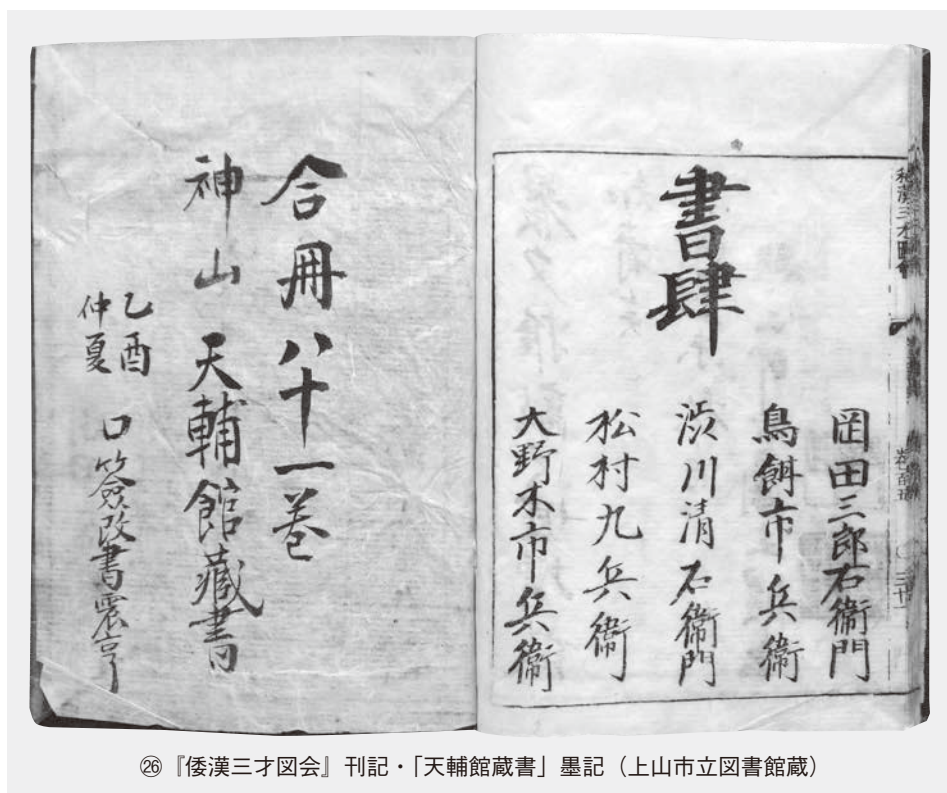 書肆
岡田三郎右衛門
鳥飼市兵衛
渋川清右衛門
松村九兵衛
大野木市兵衛
合冊八十一巻
神山 天輔館蔵書
乙酉
仲夏
口簽改書震亨
㉖『倭漢三才図会』刊記・「天輔館蔵書」墨記（上山市立図書館蔵）